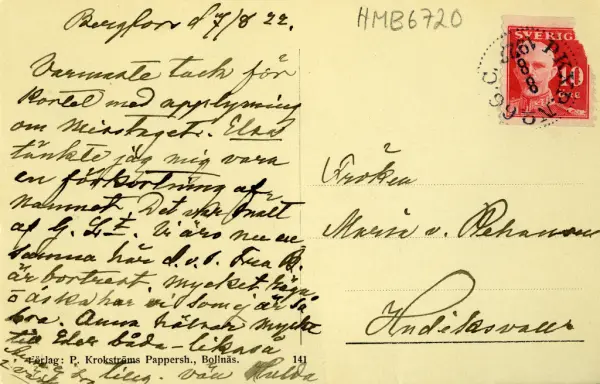 HMB6720
Bergfors d 7/8 22.
Varmaste tack för
kortet med upplysning
om misstaget. Elsa
tänkte jag mig vara
en förkortning af
namnet. Det var snält
af G. Vi äro nu en
samma här d.v.s. Frea B.
är bortrest. mycket regn
o åska har vi som ej är så
bra. Anna hälsar mycket
till Eder båda - likaså
vän Hulda
SVERIGE
10
ÖRE
8 8 1922
PKXP N
Fröken
Maria v.
Hudiksvall
Förlag: P. Krokströms Pappersh., Bollnäs.
141